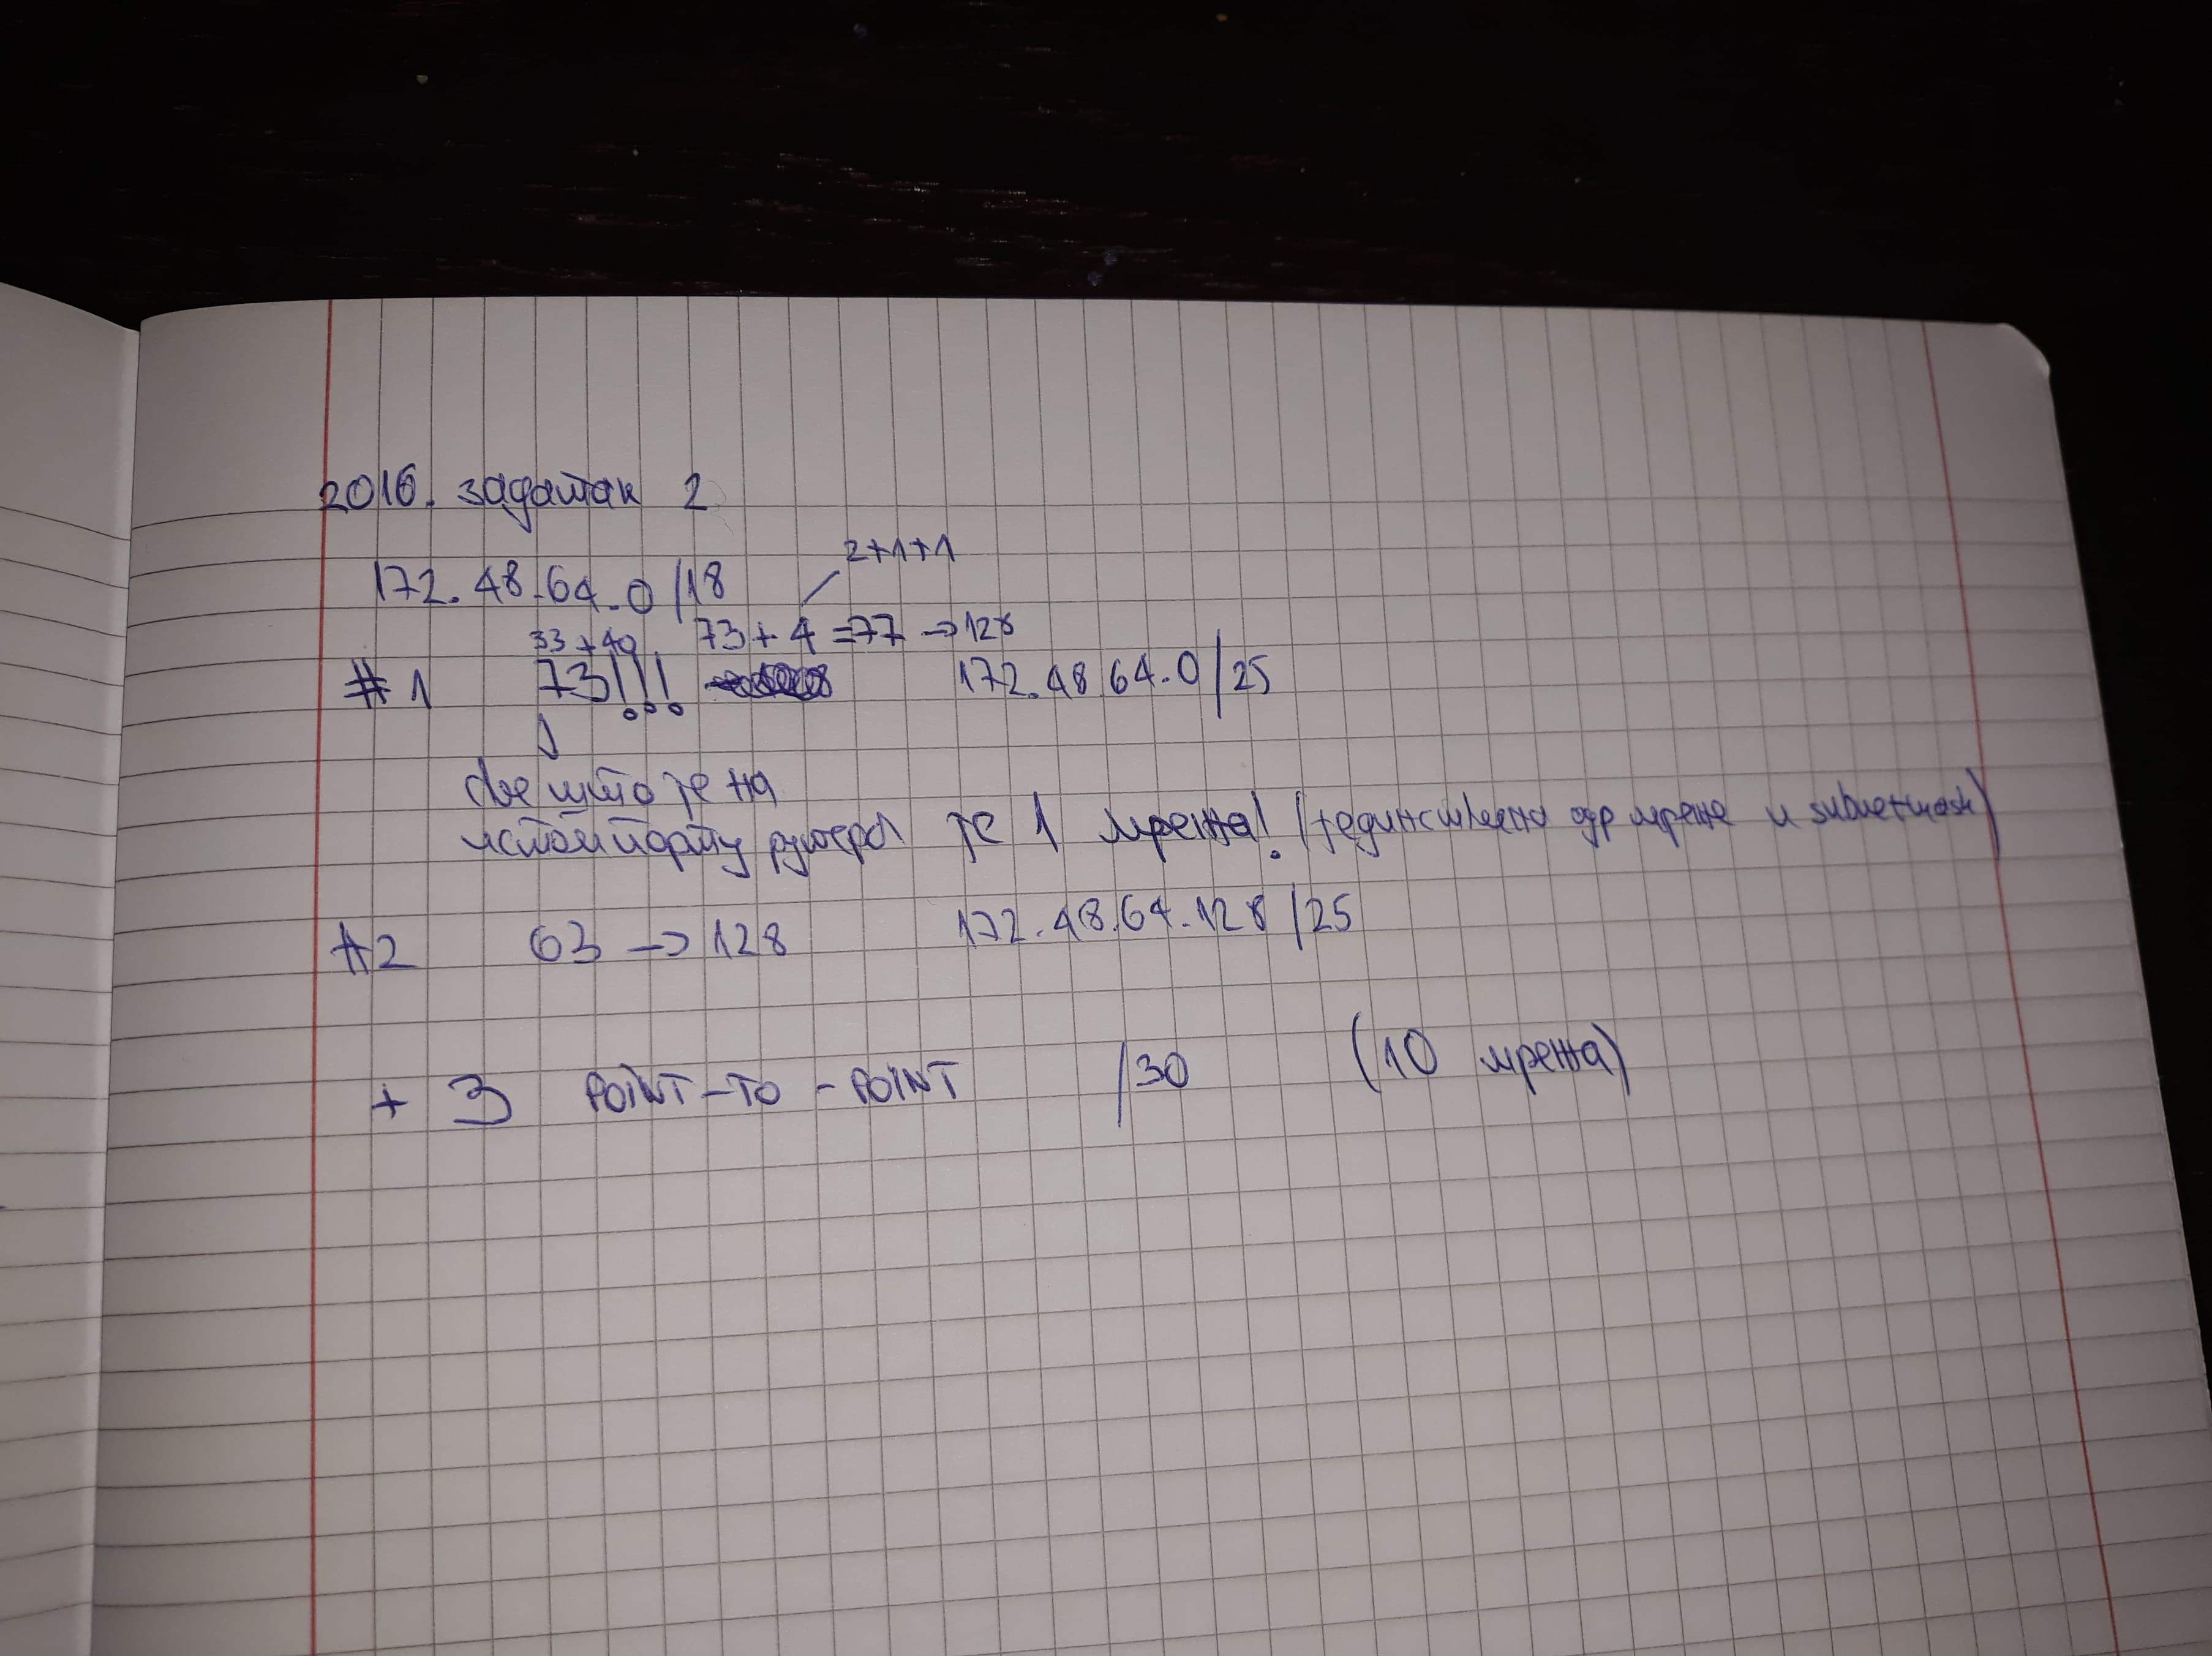 2016. задатак 2
2+1+1
172.48.64.0/18
33+40 73+4=77 → 128
#1 73!!! 172.48.64.0/25
све што је на
истом порту рутера је 1 мрежа! (јединствена адр мреже и subnet mask)
#2 63 → 128 172.48.64.128/25
+ 3 POINT-TO-POINT /30 (10 мрежа)